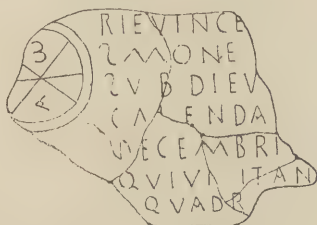 RIEVINCE
SMONE
SVB DIEV
CALENDA
DECEMBRI
QVIVI ITAN
QVADR